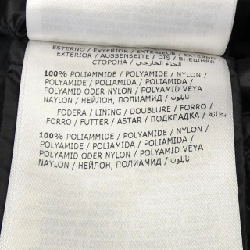 ESTERNO / EXTERIOR / EXTERIEUR /
EXTERIOR / AUSSENSEITE / DIS /
СТОРОНА / الخارجي /
100% POLIAMMIDE / POLYAMIDE / NYLON /
POLYAMIDE / POLIAMIDA / POLIAMIDE /
POLYAMID ODER NYLON / POLYAMID VEYA
NAYLON / НЕЙЛОН, ПОЛИАМИД / نايلون
FODERA / LINING / DOUBLURE / FORRO /
FORRO / FUTTER / ASTAR / ПОДКЛАДКА /
100% POLIAMMIDE / POLYAMIDE / NYLON /
POLYAMIDE / POLIAMIDA / POLIAMIDE /
POLYAMID ODER NYLON / POLYAMID VEYA
NAYLON / НЕЙЛОН, ПОЛИАМИД / نايلون